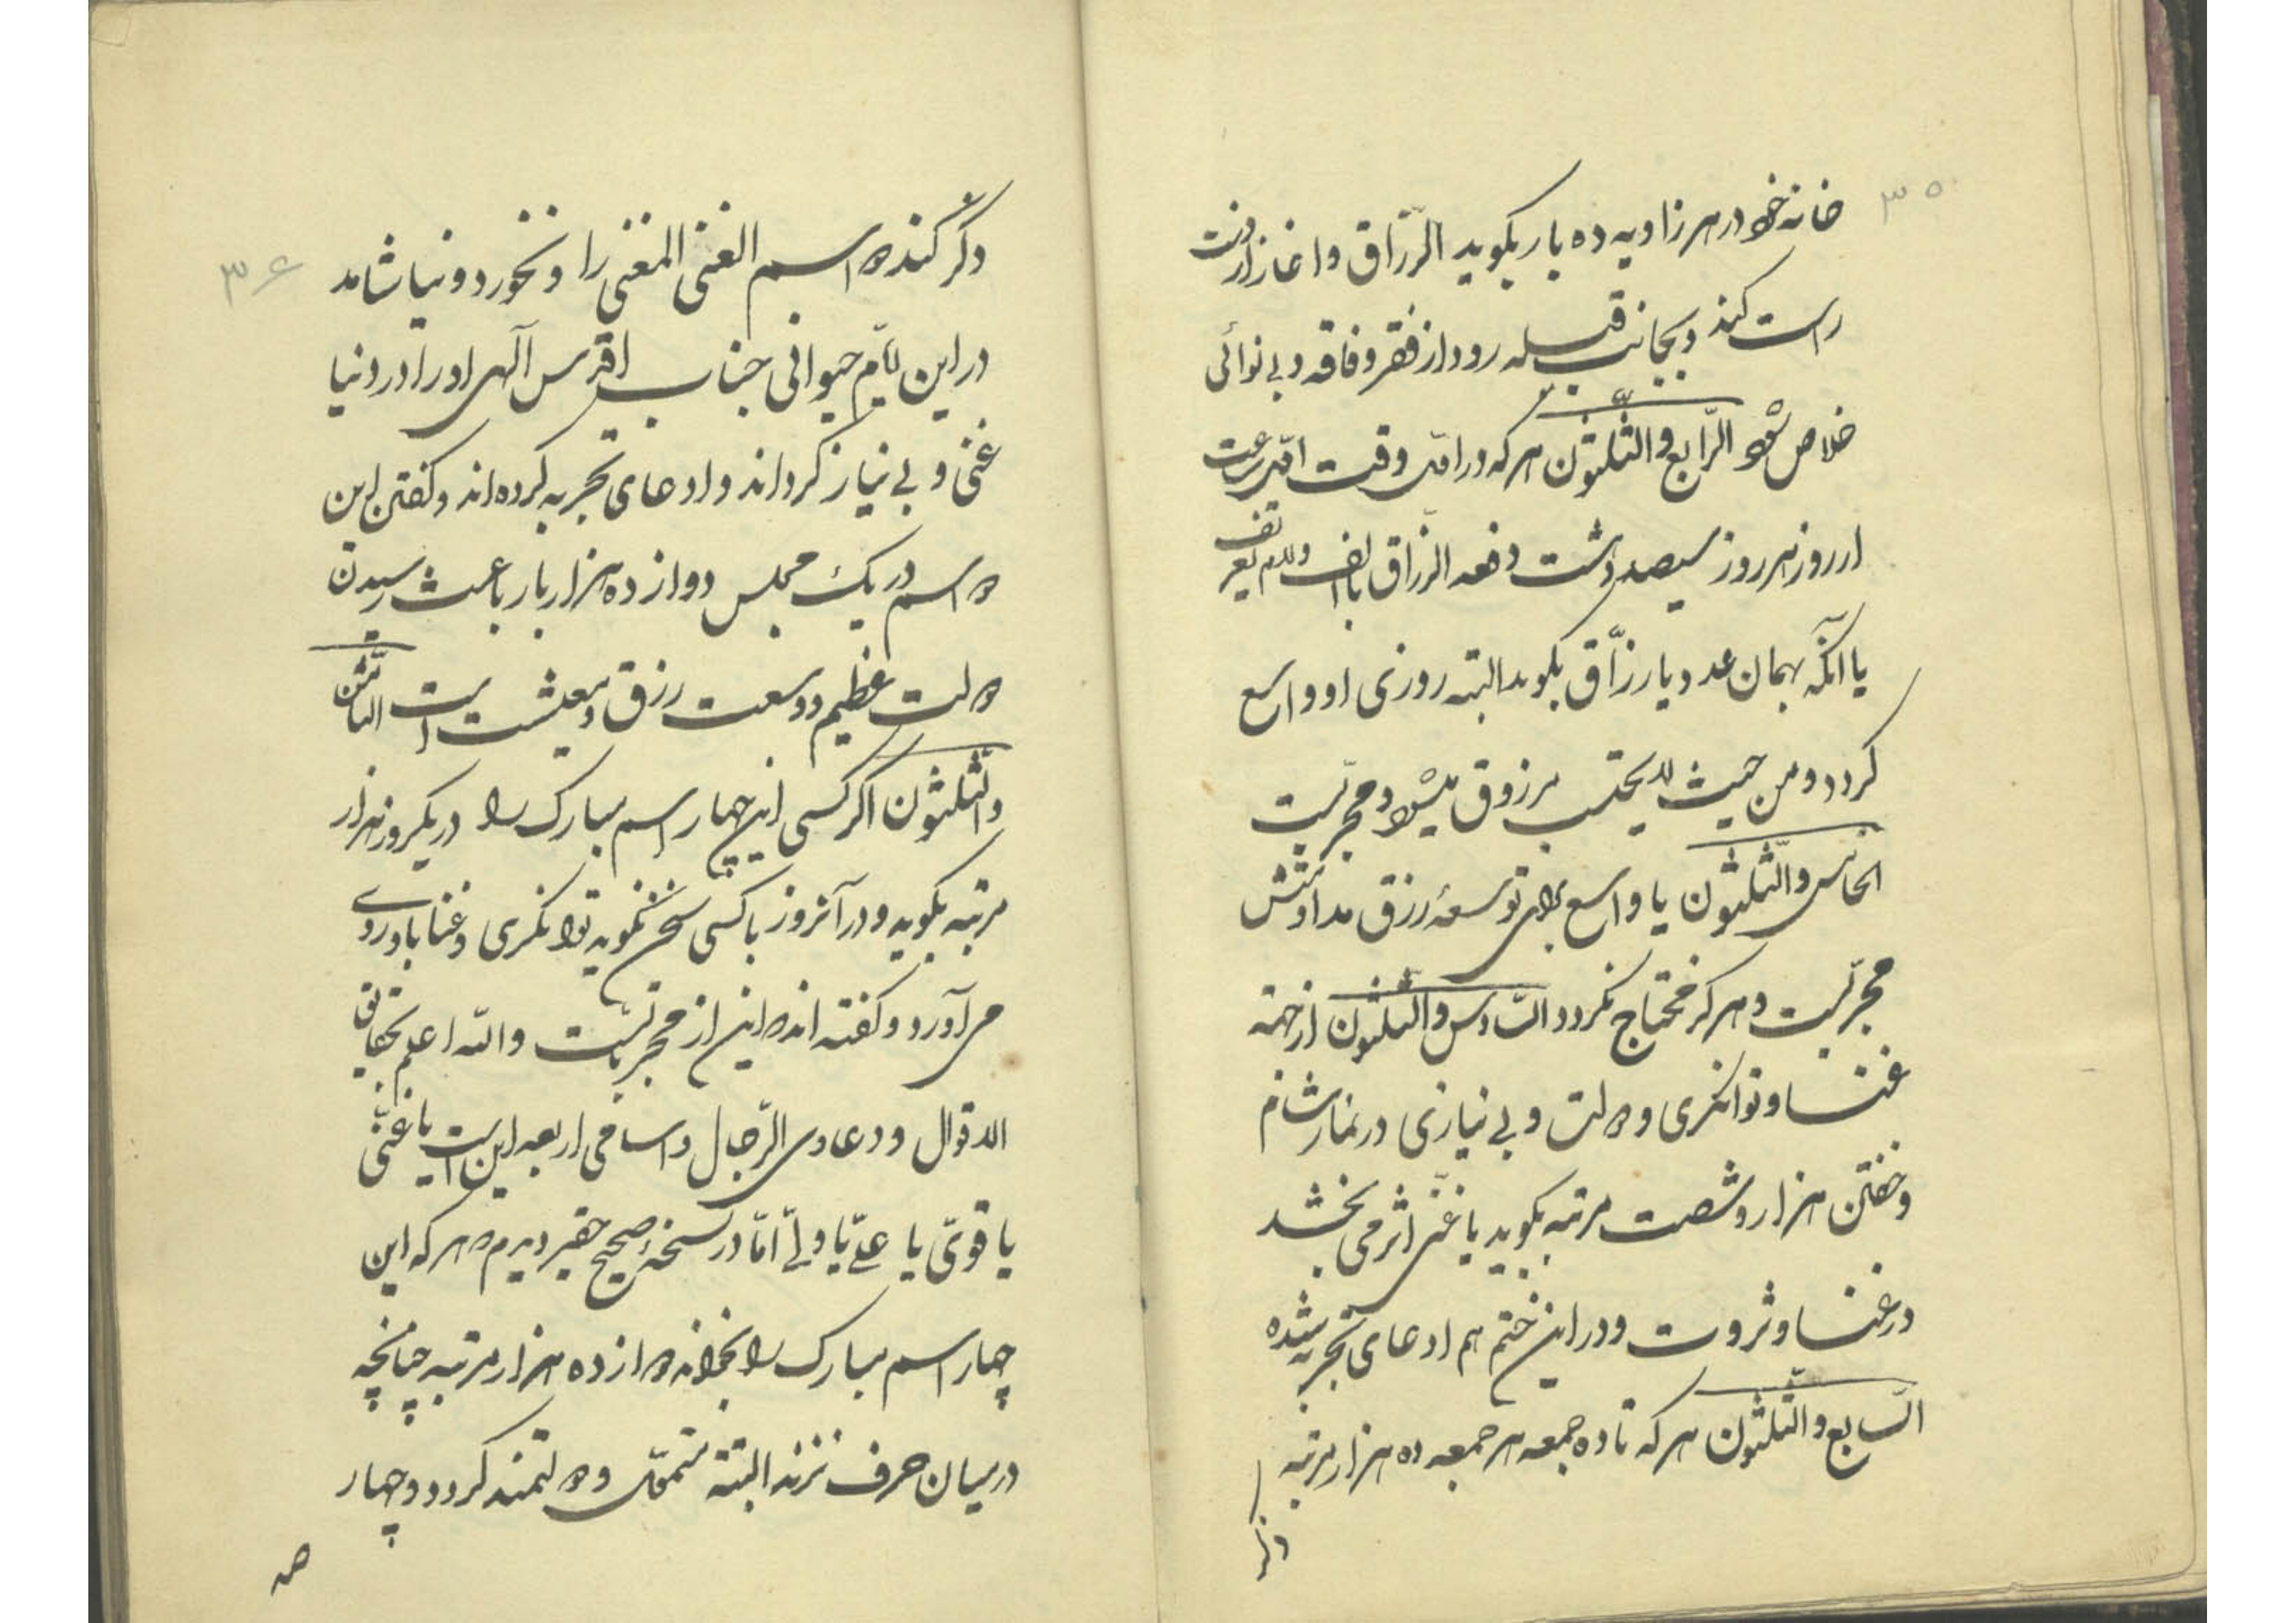 ۳۵
خانه خود در هر زاویه ده بار بکوید الرّزاق و اغاز از دست
راست کند و بجانب قبله رود از فقر و فاقه و بی نوائی
خلاص شود الرّابع والثلثون هر که در اول وقت اول ساعت
از روز هر روز سیصد و هشت دفعه الرّزاق با الف ولام تعریف
یا آنکه بهمان عدد یا رزّاق بکوید البته روزی او واسع
کردد و من حیث لا یحتسب مرزوق میشود و مجربست
الخامس والثّلثون یا واسع برای توسعهٔ رزق مداومتش
مجربست و هرکز محتاج نکردد السّادس والثلثون از جهته
غنا و توانکری و دولت و بی نیازی در نماز شام
و خفتن هزار و شصت مرتبه بکوید یا غنی اثر می بخشد
در غنا و ثروت و در این ختم هم ادعای تجربه شده
السّابع والثّلثون هر که تا ده جمعه هر جمعه ده هزار مرتبه
ذکر
۳۶
ذکر کند دو اسم الغنی المغنی را و نخورد و نیاشامد
در این ایّام حیوانی جناب اقدس آلهی او را در دنیا
غنی و بی نیاز کرداند و ادعای تجربه کرده اند و کفتن این
دو اسم در یک مجلس دوازده هزار بار باعث رسیدن
دولت عظیم و وسعت رزق و معیشت است الثّامن
والثّلثون اکر کسی این چهار اسم مبارک را در یکروز هزار
مرتبه بکوید و در آنروز با کسی سخن نکوید توانکری و غنا باو روی
می آورد و کفته اند که این از مجرباتست والله اعلم بحقائق
الاقوال و دعاوی الرّجال و اسامی اربعه این است یا غنیّ
یا قویّ یا علیّ یا ولیّ امّا در نسخهٔ صحیح حقیر دیدم که هر که این
چهار اسم مبارک را بخواند دوازده هزار مرتبه چنانچه
در میان حرف نزند البتّه متموّل و دولتمند کردد و چهار